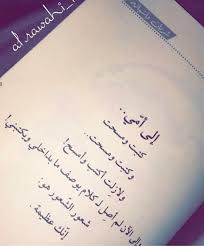 alrawahi
إلى أمي..
كتبت ومسحت
وكتبت ومسحت..
ولازلت أكتب وأمسح!
إلى الآن لم أصل لكلام يوصف ما بداخلي ويكتبني!
شعور الشعور هو:
إنك عظيمة.